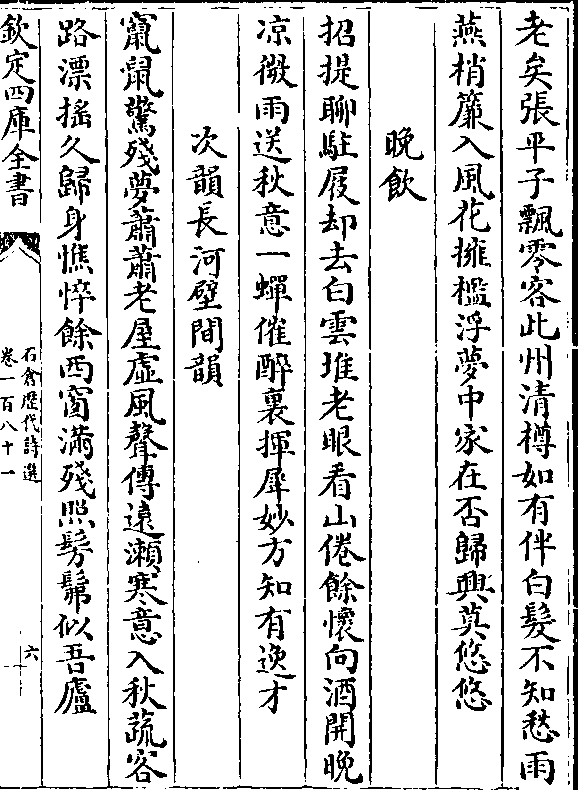 老矣張平子飄零客此州清樽如有伴白髮不知愁雨
燕梢簾入風花擁檻浮夢中家在否歸興莫悠悠
晚飲
招提聊駐屐却去白雲堆老眼看山倦餘懷向酒開晚
凉微雨送秋意一蟬催醉裏揮犀妙方知有逸才
次韻長河壁間韻
竄鼠驚殘夢蕭蕭老屋虛風聲傳遠瀨寒意入秋蔬客
路漂揺久歸身憔悴餘西窗滿殘照髣髴似吾廬
欽定四庫全書
石倉歴代詩選
卷一百八十一
六